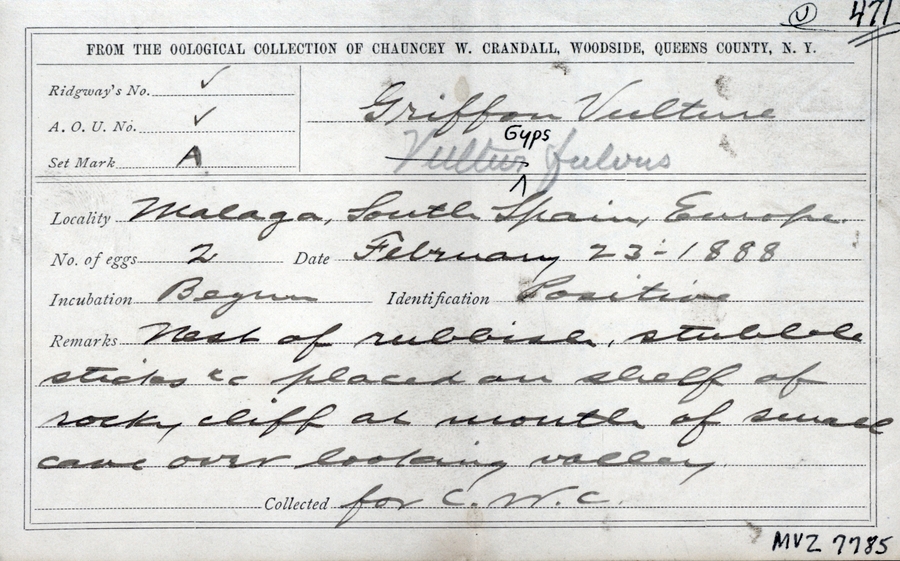 U 471
FROM THE OOLOGICAL COLLECTION OF CHAUNCEY W. CRANDALL, WOODSIDE, QUEENS COUNTY, N. Y.
Ridgway's No. ✓
Griffon Vulture
A. O. U. No. ✓
Gyps
Set Mark A
Vultur fulvus
Locality Malaga, South Spain, Europe.
No. of eggs 2 Date February 23-1888
Incubation Begun Identification Positive
Remarks Nest of rubbish, stubble
sticks &c placed on shelf of
rocky cliff at mouth of small
cave over looking valley.
Collected for C. W. C.
MVZ 7785